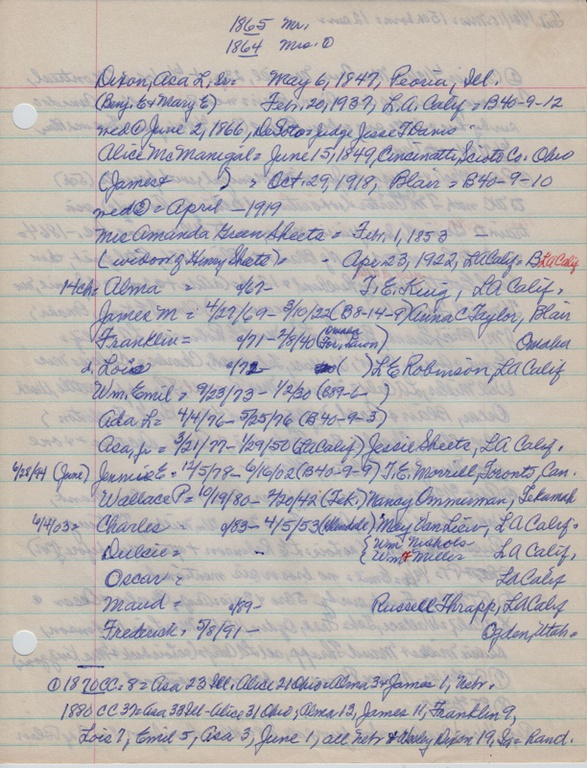 1865 Mr.
1864 Mrs. D
Dixon, Asa L., Sr. = May 6, 1847, Peoria, Ill.
(Benj. E + Mary E) Feb. 20, 1937, L.A. Calif = B40-9-12
med ① June 2, 1866, DeSoto = Judge Jesse T Davis
Alice McManigal = June 15, 1849, Cincinatti, Scioto Co. Ohio
(James + ) = Oct. 29, 1918, Blair = B40-9-10
med ② = April - 1919
Mrs Amanda Sheets = Feb. 1, 1853 -
(widow of Henry Sheets) = - Apr 23, 1922, LA Calif = B LA Calif
14 ch = Alma = 0/67- T. E. King, LA Calif.
James M = 4/27/69 - 3/10/22 (B8-14-9) Anna C Taylor, Blair
Franklin = 0/71 - 2/8/40 (Omaha For. Lawn) Omaha
d. Lois 0/72 ( ) L E Robinson, LA Calif
Wm. Emil = 9/23/73 - 1/2/30 (B89-6- )
Ada L = 4/4/76 - 5/25/76 (B40-9-3)
Asa, Jr = 3/21/77 - 1/29/50 (LA Calif) Jessie Sheets, LA Calif.
6/28/94 (June) Jennie E = 12/5/78 - 6/16/02 (B40-9-9) T. E. Morrell, Toronto, Can.
Wallace P = 10/19/80 - 4/20/42 (Tek.) Nancy Ommerman, Tekamah
6/4/03 = Charles 0/83 - 4/5/53 (Glendale) May Van Liew, LA Calif.
Dulcie = - { Wm Nichols
Wm F Miller LA Calif.
Oscar = LA Calif
Maud = 0/89- Russell Thrapp, LA Calif
Frederick = 5/8/91- Ogden, Utah.
① 1870 CC = 8 = Asa 23 Ill. Alice 21 Ohio = Alma 3 + James 1, Nebr.
1880 CC 37 = Asa 33 Ill - Alice 31 Ohio, Alma 13, James 11, Franklin 9,
Lois 7, Emil 5, Asa 3, June 1, all Nebr + Dixon 19, Ia = Rand.